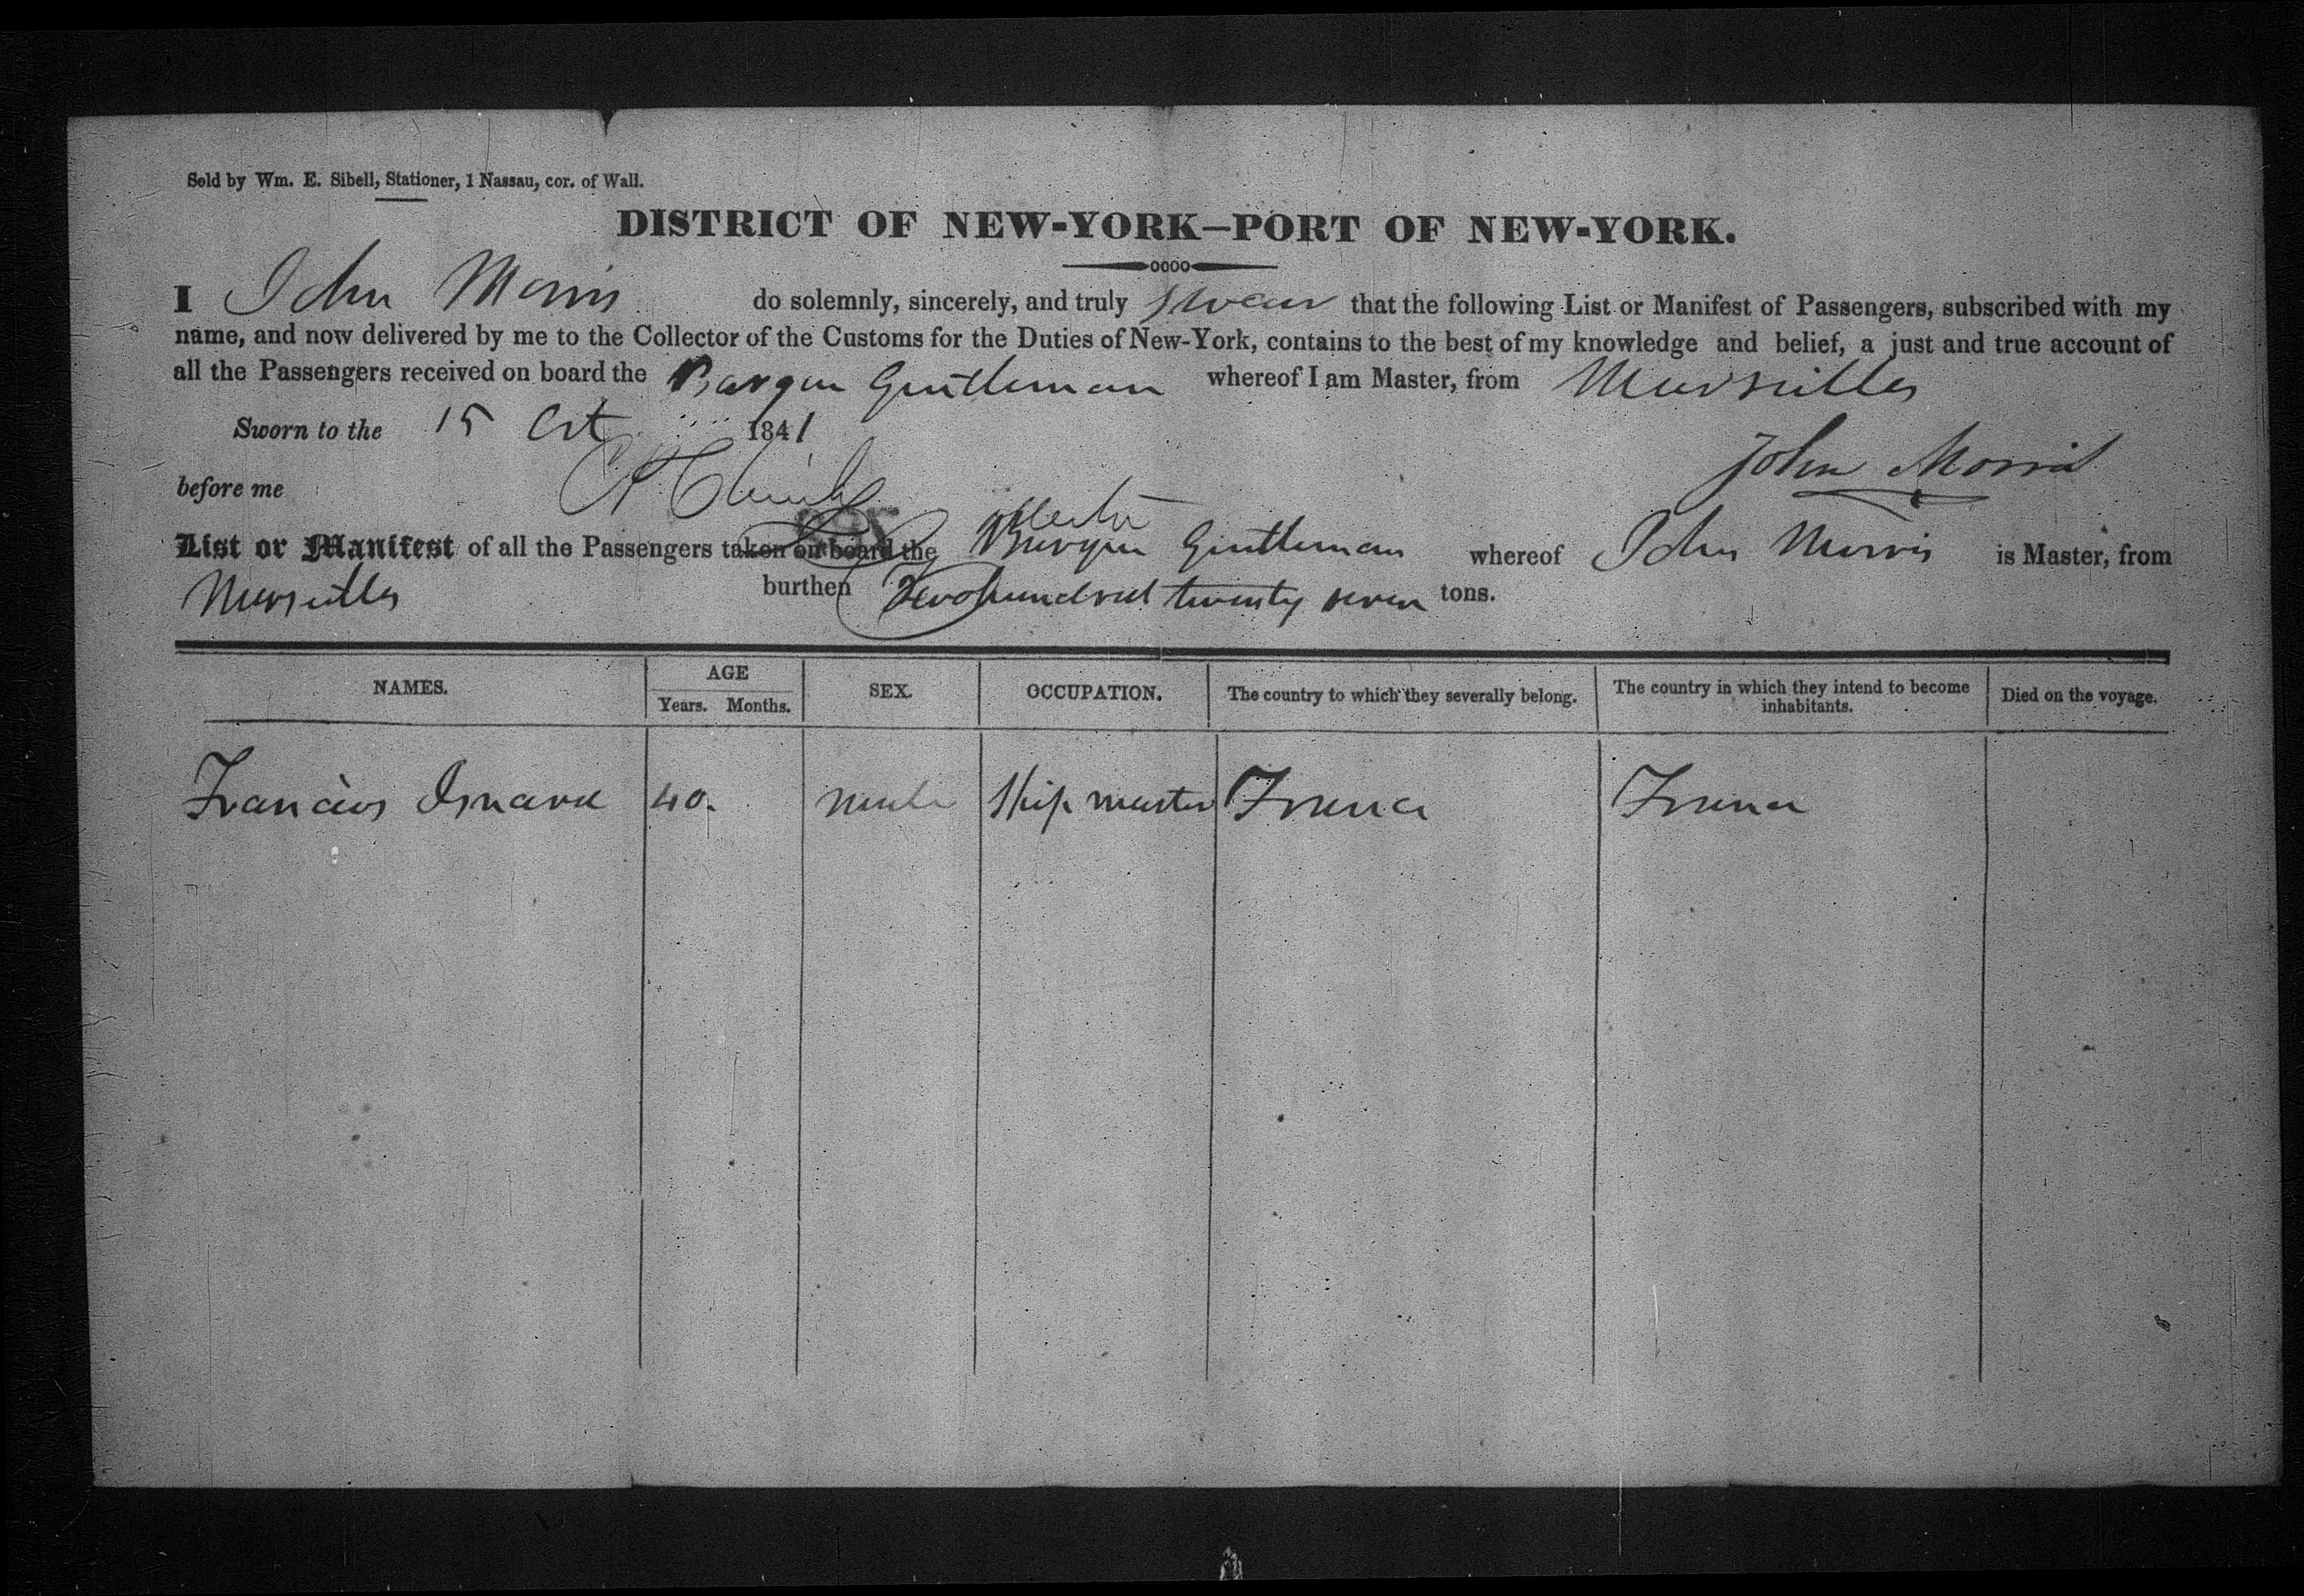 Sold by Wm. E. Sibell, Stationer, 1 Nassau, cor. of Wall.
DISTRICT OF NEW-YORK—PORT OF NEW-YORK.
I John Morris do solemnly, sincerely, and truly swear that the following List or Manifest of Passengers, subscribed with my
name, and now delivered by me to the Collector of the Customs for the Duties of New-York, contains to the best of my knowledge and belief, a just and true account of
all the Passengers received on board the Barque Gentleman whereof I am Master, from Marseilles
Sworn to the 15 Oct 1841
John Morris
before me
List or Manifest of all the Passengers taken on board the Barque Gentleman whereof John Morris is Master, from
Marseilles burthen Two hundred twenty seven tons.
NAMES. AGE SEX. OCCUPATION. The country to which they severally belong. The country in which they intend to become inhabitants. Died on the voyage.
Years. Months.
Francois Isnard 40. male Ship master France France